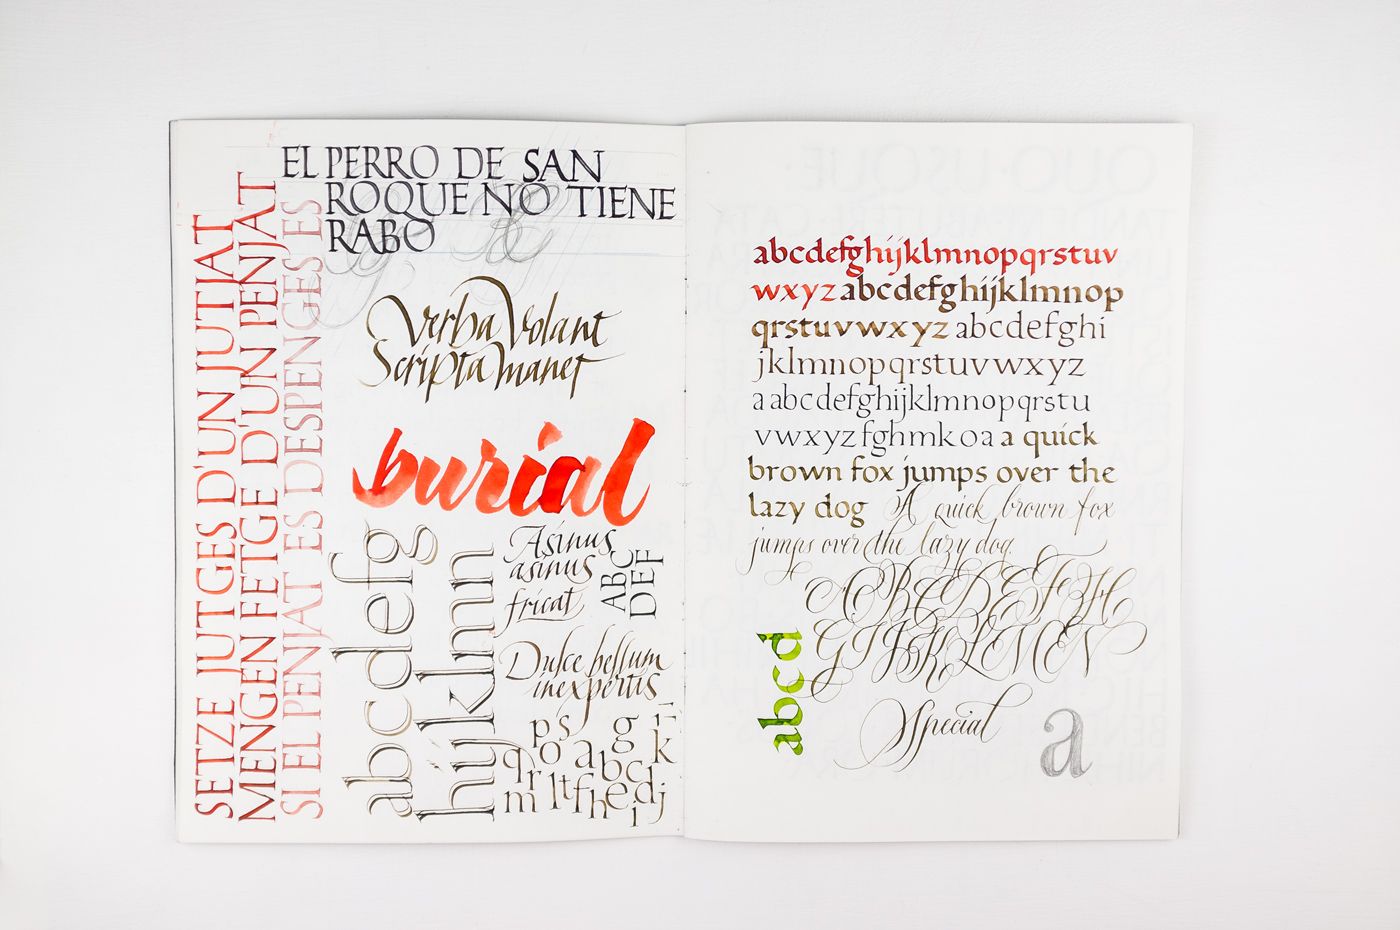 SETZE JUTGES D'UN JUTJAT
MENGEN FETGE D'UN PENJAT
SI EL PENJAT ES DESPENGES ES
EL PERRO DE SAN
ROQUE NO TIENE
RABO
Verba Volant
Scripta manet
burial
abcdefg
hijklmn
Asinus
asinus
fricat
ABC
DEF
Dulce bellum
inexpertis
p s g
q o a b c k
m r l t f h e d j
i
abcdefghijklmnopqrstuv
wxyz abcdefghijklmnop
qrstuvwxyz abcdefghi
jklmnopqrstuvwxyz
a abcdefghijklmnopqrstu
vwxyz fghmkoa a quick
brown fox jumps over the
lazy dog A quick brown fox
jumps over the lazy dog.
ABCDEFGH
GIJKLMEN
abcd
Special
a